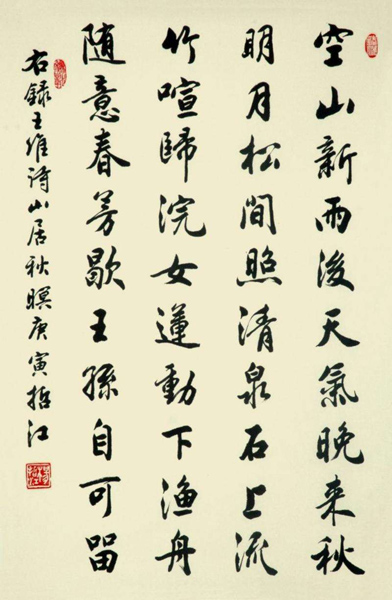 空山新雨後天氣晚来秋
明月松間照清泉石上流
竹喧歸浣女蓮動下渔舟
随意春芳歇王孫自可留
右録王維詩山居秋暝庚寅哲江